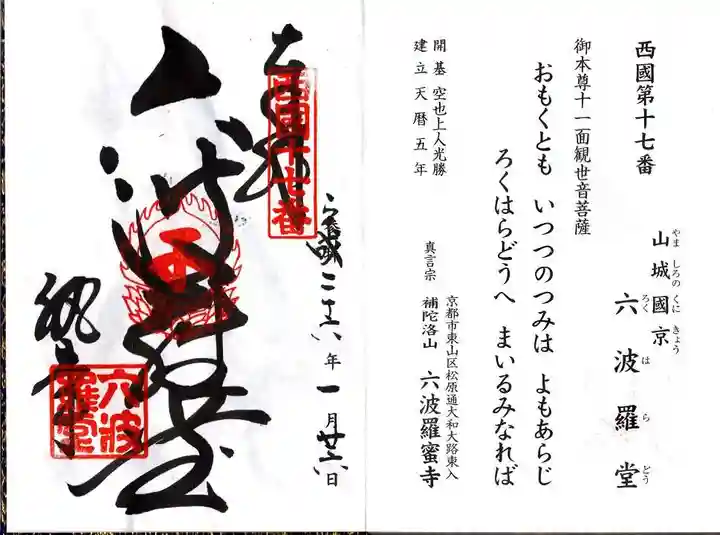 西國第十七番
山城國京
やましろのくにきょう
六波羅堂
ろくはらどう
御本尊十一面観世音菩薩
おもくとも いつつのつみは よもあらじ
ろくはらどうへ まいるみなれば
開基 空也上人光勝
建立天暦五年
京都市東山区松原通大和大路東入
真言宗 補陀洛山 六波羅蜜寺
西国十七番
平成二十六年一月廿六日
六波羅堂
六波
羅堂